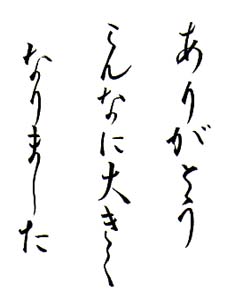 ありがとう
こんなに大きく
なりました